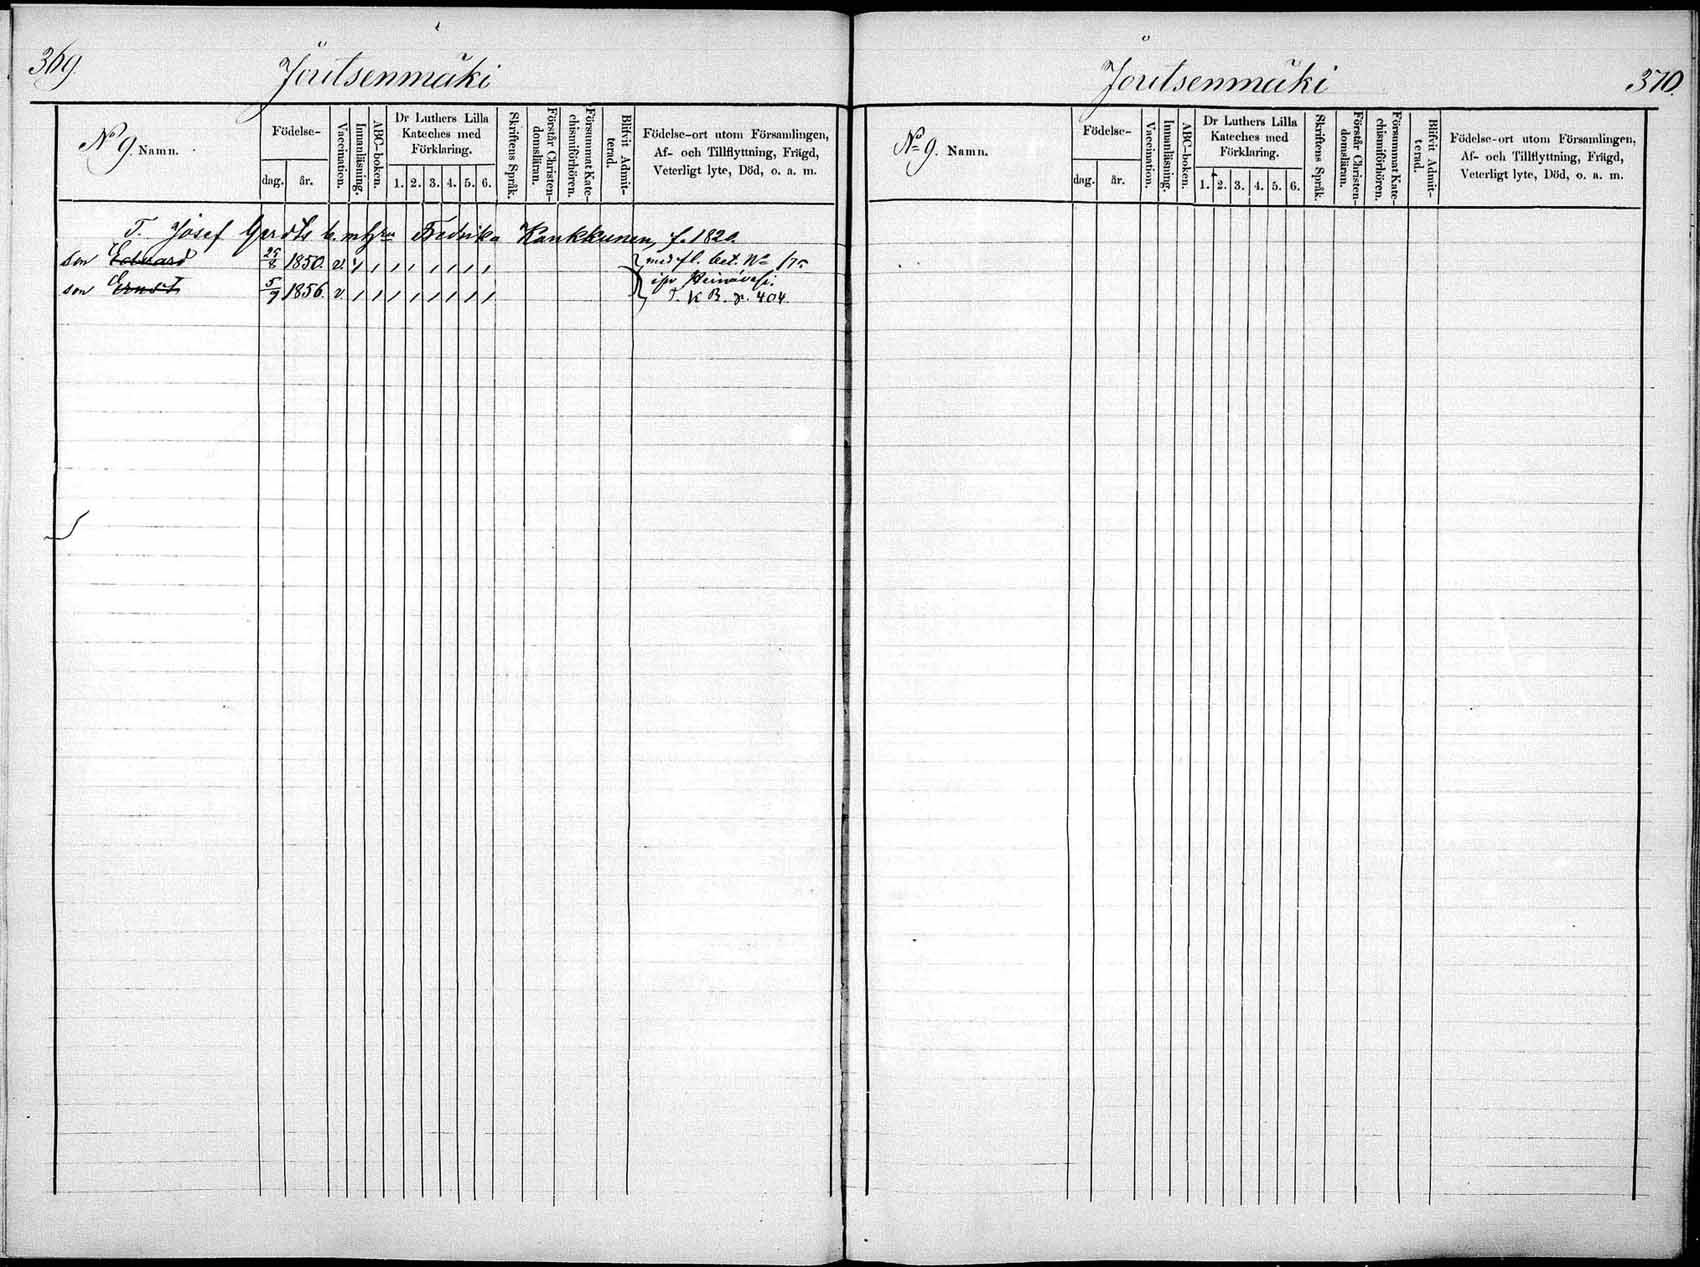 369.
Joutsenmäki
No 9. Namn.
Födelse-
dag.
år.
Vaccination.
Innanläsning.
ABC-boken.
Dr Luthers Lilla
Kateches med
Förklaring.
1. 2. 3. 4. 5. 6.
Skriftens Språk.
Förstår Christen-
domsläran.
Försummat Kate-
chismiförhören.
Blifvit Admit-
terad.
Födelse-ort utom Församlingen,
Af- och Tillflyttning, Frägd,
Veterligt lyte, Död, o. a. m.
T. Josef Gerdts Fredrika Kaukkunen, f. 1820.
son Eduard 25/8 1850. v. / / / / / / / / med fl. bet. No
son Ernst 5/9 1856. v. / / / / / / / /
Heinävesi.
T. K B. p. 404.
Joutsenmäki
370.
No 9. Namn.
Födelse-
dag.
år.
Vaccination.
Innanläsning.
ABC-boken.
Dr Luthers Lilla
Kateches med
Förklaring.
1. 2. 3. 4. 5. 6.
Skriftens Språk.
Förstår Christen-
domsläran.
Försummat Kate-
chismiförhören.
Blifvit Admit-
terad.
Födelse-ort utom Församlingen,
Af- och Tillflyttning, Frägd,
Veterligt lyte, Död, o. a. m.